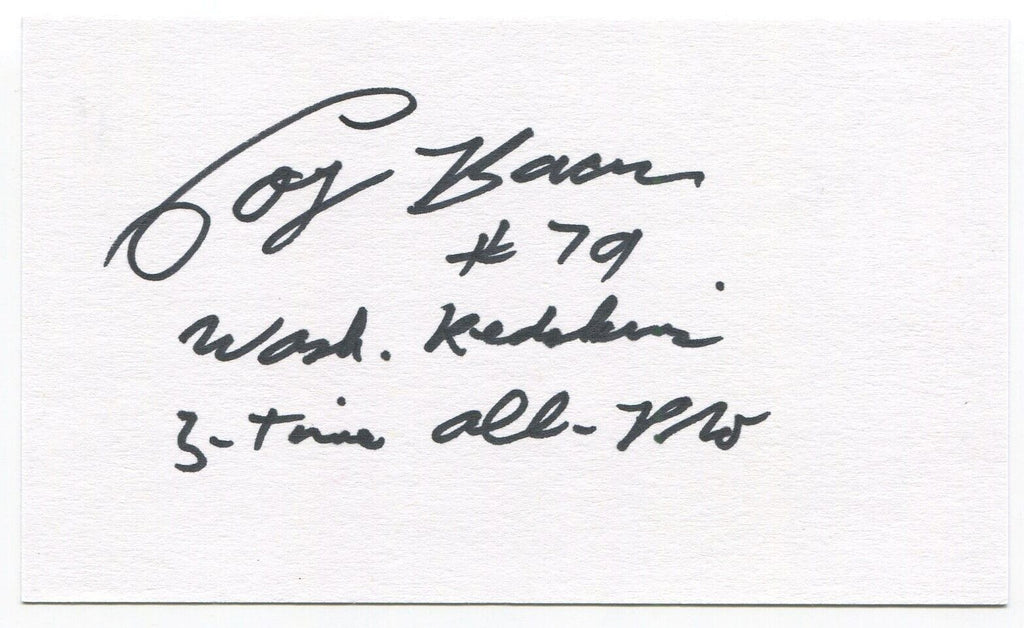 Coy Bacon
# 79
Wash. Redskins
3-Time All-Pro